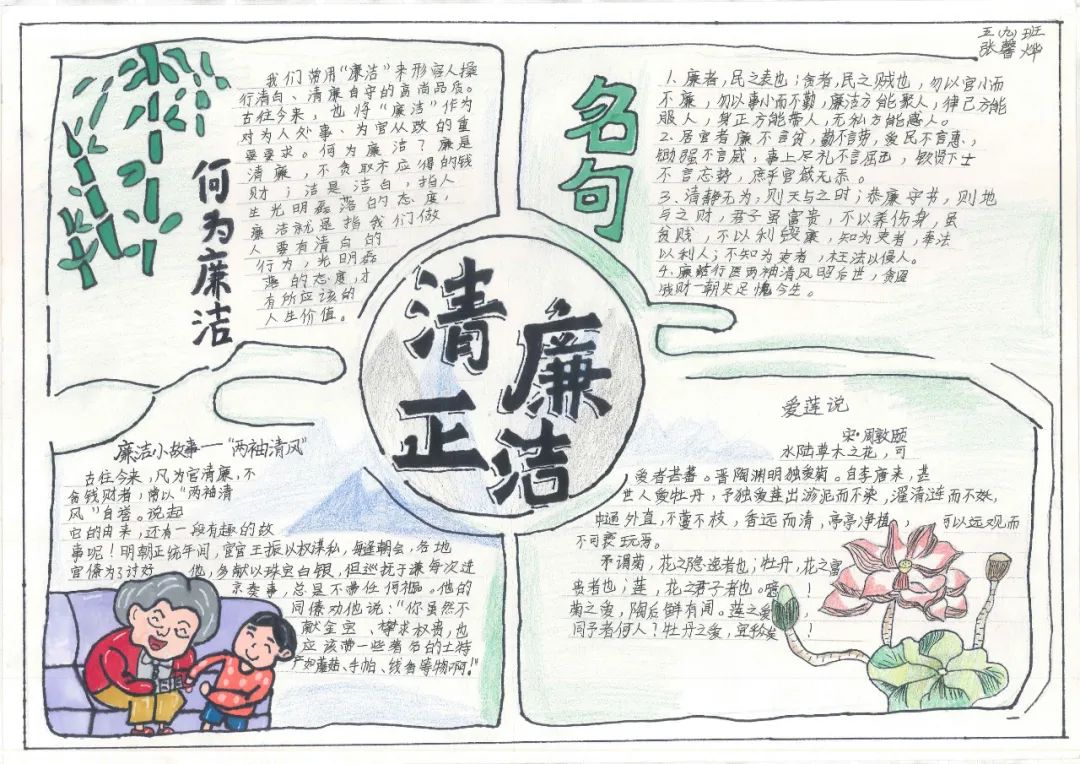 五(九)班
张馨烨
何为廉洁
我们常用“廉洁”来形容人操
行清白、清廉自守的高尚品质。
古往今来，也将“廉洁”作为
对为人处事、为官从政的重
要要求。何为廉洁？廉是
清廉，不贪取不应得的钱
财；洁是洁白，指人
生光明磊落的态度，
廉洁就是指我们做
人要有清白的
行为，光明磊
落的态度，才
有所应该的
人生价值。
名句
1、廉者，民之表也；贪者，民之贼也，勿以官小而
不廉，勿以事小而不勤，廉洁方能聚人，律己方能
服人，身正方能带人，无私方能感人。
2、居官者廉不言贫，勤不言劳，爱民不言惠，
锄强不言威，事上尽礼不言屈，钦贤下士
不言忘势，庶乎官箴无忝。
3、清静无为，则天与之时；恭廉守书，则地
与之财，君子虽富贵，不以养伤身，虽
贫贱，不以利毁廉，知为吏者，奉法
以利人；不知为吏者，枉法以侵人。
4、廉行医两袖清风昭后世，贪
财一朝失足愧今生。
清正
廉洁
廉洁小故事——“两袖清风”
古往今来，凡为官清廉，不
贪钱财者，常以“两袖清
风”自誉。说起
它的由来，还有一段有趣的故
事呢！明朝正统年间，宦官王振以权谋私，每逢朝会，各地
官僚为了讨好他，多献以珠宝白银，但巡抚于谦每次进
京奏事，总是不带任何礼品。他的
同僚劝他说：“你虽然不
献金宝、攀求权贵，也
应该带一些著名的土特
产如蘑菇、手帕、线香等物啊！”
爱莲说
宋·周敦颐
水陆草木之花，可
爱者甚蕃。晋陶渊明独爱菊。自李唐来，甚
世人爱牡丹，予独爱莲出淤泥而不染，濯清涟而不妖，
中通外直，不蔓不枝，香远而清，亭亭净植，可以远观而
不可亵玩焉。
予谓菊，花之隐逸者也；牡丹，花之富
贵者也；莲，花之君子者也。噫！
菊之爱，陶后鲜有闻。莲之爱，
同予者何人？牡丹之爱，宜乎众矣！